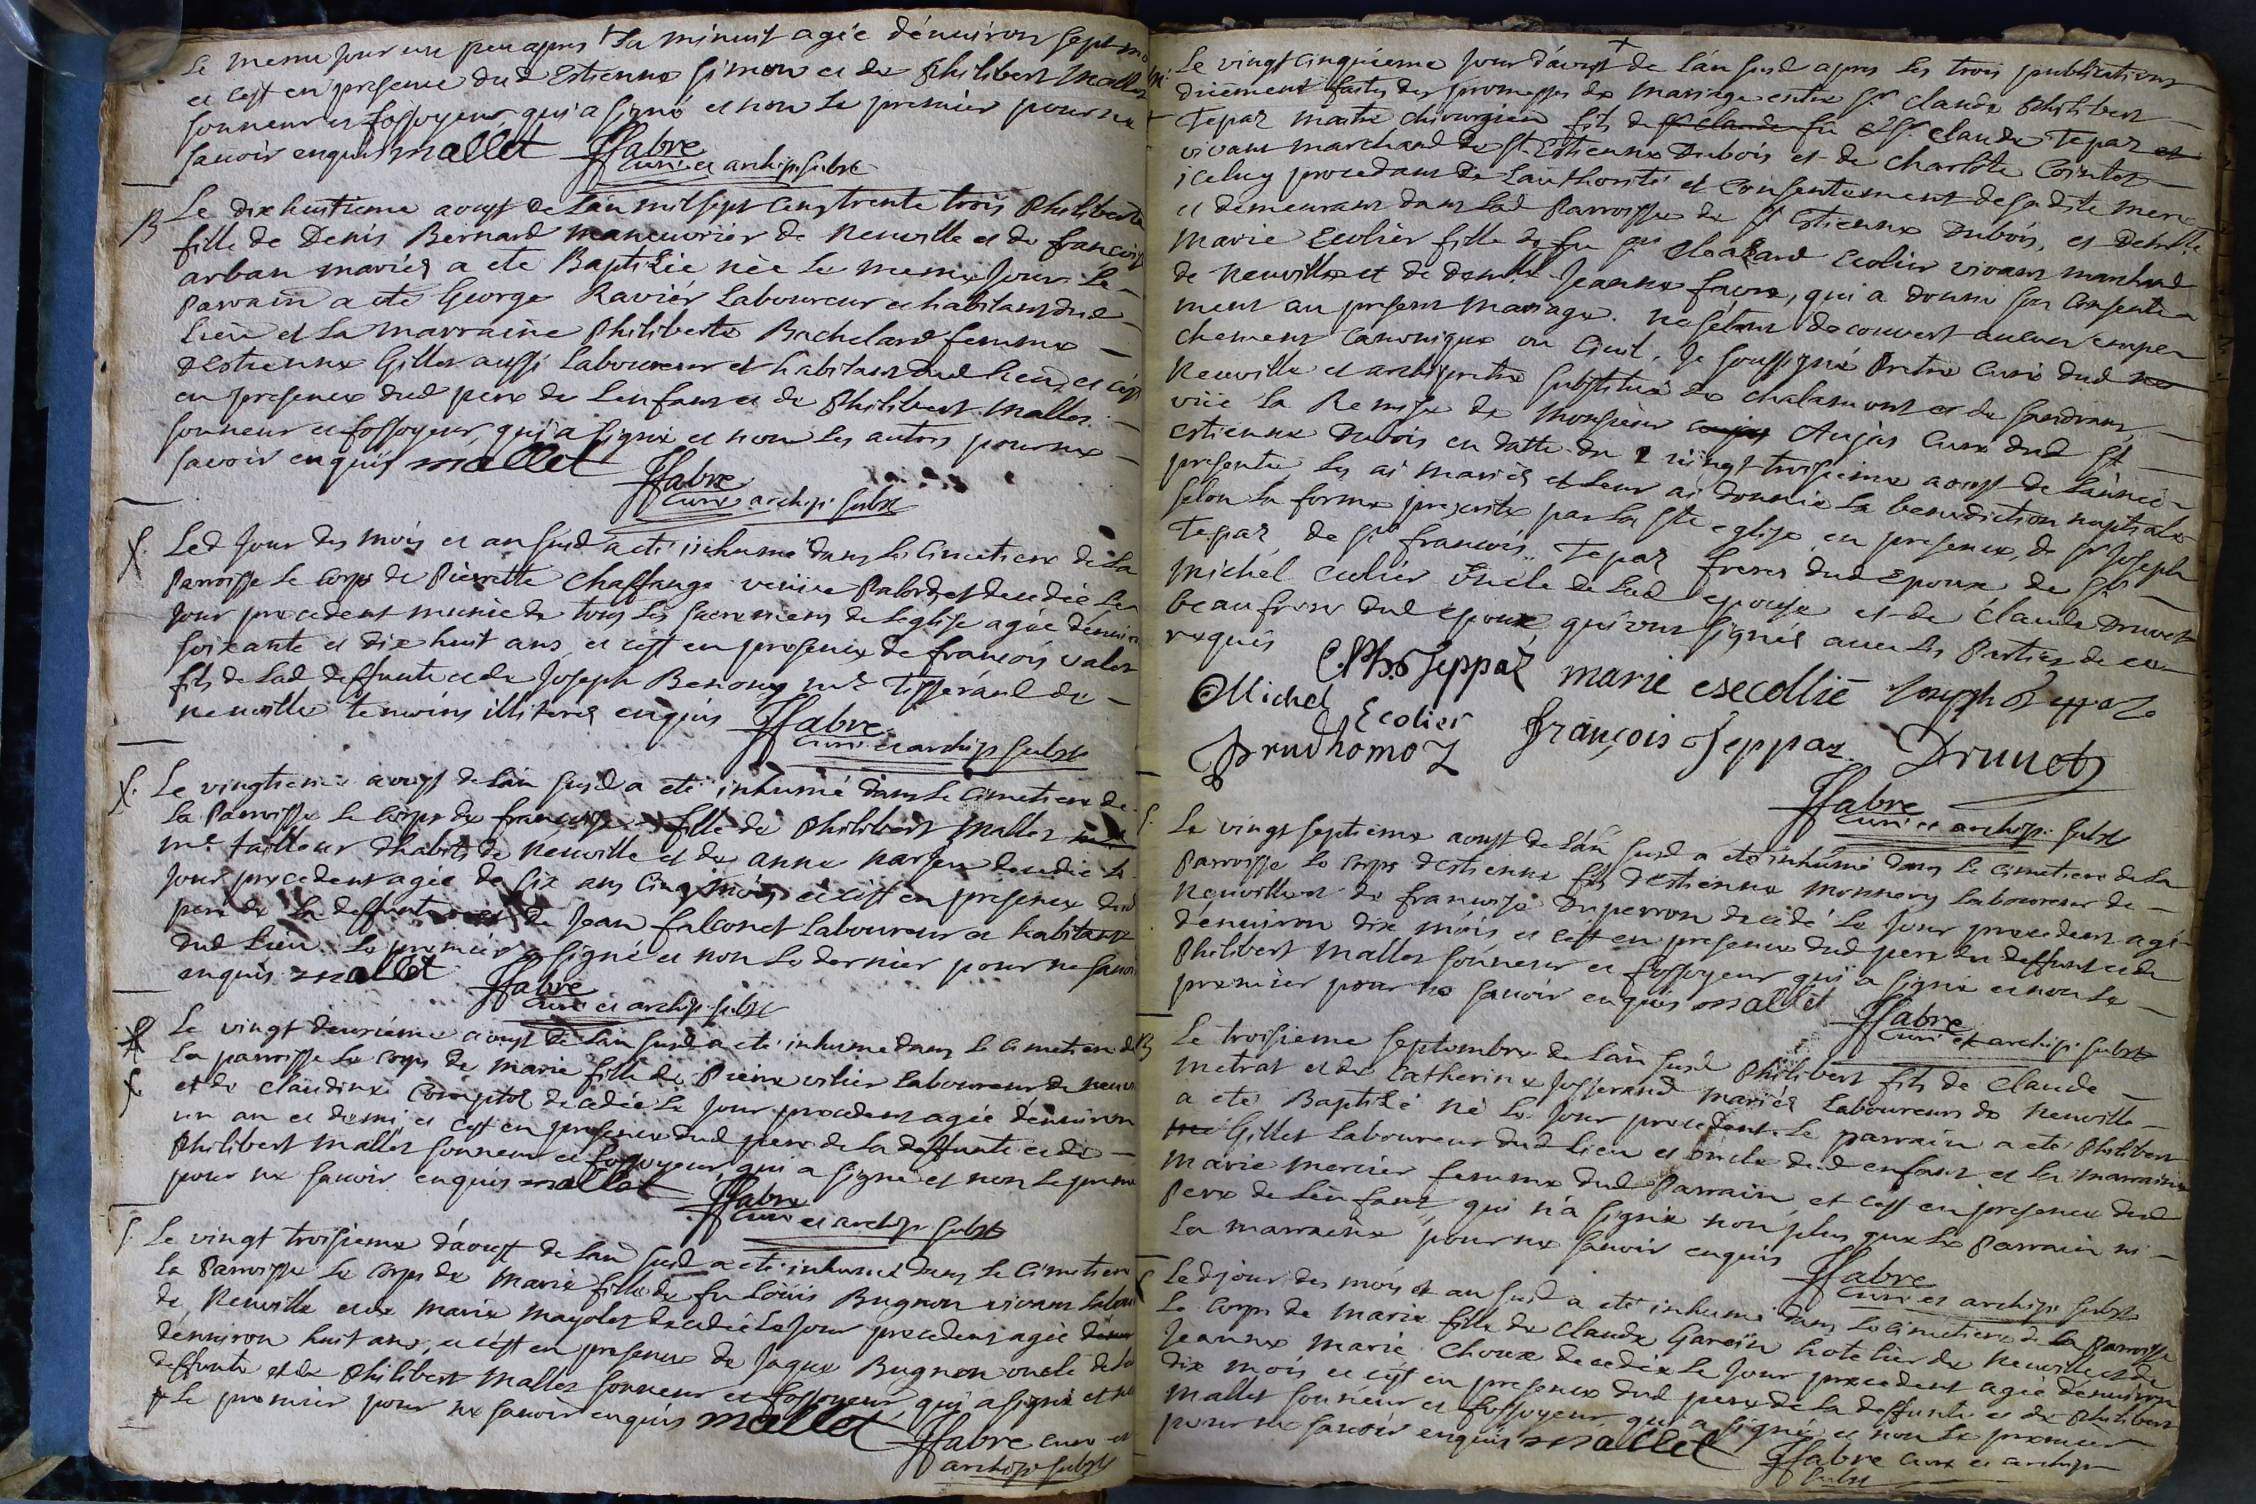 Le meme jour un peu apres la minuit agée dénuiron sept
et cest en presence dud Estienne Simon et de Philibert Mallet
sonneur et fossoyeur qui a signé et non le premier pour ne
sauoir enquis mallet JFabre
curé et archip. subst
B Le dix huitieme aoust de Lan mil sept cens trente trois Philiberte
fille de Denis Bernard manouvrier de Neuville et de francoise
arban mariés a ete Baptisée née le meme jour. Le
parrain a ete George Raviér Laboureur et habitant dud
Lieu et la marraine Philiberte Bachelard femme
d'Estienne Gillet aussi Laboureur et habitant dud lieu, et cest
en presence dud pere de Lenfant et de Philibert Mallet
sonneur et fossoyeur, qui a signé et non les autres pour ne
savoir enquis mallet JFabre
curé archip. subst
S. Led jour des mois et an susd a eté inhumé dans le Cimetiere de la
Parroisse le corps de Pierrette Chaffange veuve decedée le
jour precedent munie de tous les sacremens de Leglise agée dénuiron
soixante et dix huit ans, et cest en presence de francois
fils de lad deffunte et de Joseph Benony me Tisserand de
neuville temoins illiterés enquis JFabre
curé et archip subst
S. Le vingtieme aoust de Lan susd a eté inhumé dans le Cimetiere de
la Parroisse le corps de francoise fille de Philibert Mallet
me tailleur dhabits de Neuville et de anne decedée le
jour precedent agée de six ans cinq mois et cest en presence dud
pere de la deffunte de Jean falconet Laboureur et habitant
dud Lieu le premier a signé et non le dernier pour ne sauoir
enquis mallet JFabre
curé et archip. subst
S Le vingt deuxiéme aoust de Lan susd a eté inhumé dans le cimetiere de
la parroisse le corps de Marie fille de Pierre Laboureur de neuville
et de Claudine decedée le jour precedent agée dénuiron
un an et demi, et cest en presence dud pere de la deffunte et de
Philibert Mallet sonneur et fossoyeur, qui a signé et non le premier
pour ne sauoir enquis mallet JFabre
curé et archip. subst
S. Le vingt troisieme d'aoust de Lan susd a eté inhumé dans le Cimetiere
la Parroisse le corps de Marie fille de fu Loüis Bugnon vivant
de Neuville et de Marie decedée le jour precedent agée
dénuiron huit ans, et cest en presence de Jaque Bugnon oncle de la
deffunte et de Philibert Mallet sonneur et fossoyeur, qui a signé et non
le premier pour ne sauoir enquis mallet JFabre curé et
archip. subst
M. Le vingt cinquieme jour d'aoust de Lan susd apres les trois publications
düement faites des promesses de Mariage entre sr Claude Philibert
Tepaz maitre chirurgien fils de fu sr Claude Tepaz
vivant marchand de St Estienne Dubois et de Charlote Cointet
iceluy procedant de Lauthorité et Consentement de sadite mere
et demeurant dans lad Parroisse de St Estienne Dubois, et Delle
Marie Ecolier fille de fu sr Ecolier vivant marchand
de Neuville et de demlle Jeanne favre, qui a donné son consente
ment au present Mariage. ne setant decouvert aucun empe
chement canonique ou civil. Je soussigné Pretre Curé dud
Neuville et archipretre substitué de Chalamont et de Sandrans
vüe la Remise de Monsieur Aujas Curé dud St
Estienne Dubois en datte du vingt troisieme aoust de Lannée
presente les ai mariés et leur ai donnée la benediction nuptiale
selon la forme prescrite par la Ste eglise, en presence, de sr Joseph
Tepaz, de sr francois Tepaz freres dud Epoux de sr
Michel Ecolier oncle de lad epouse et de Claude Druvet
beau frere dud epoux qui ont signés avec les Parties de ce
requis
C.Ph. Teppaz marie esecollie Joseph Teppaz
Michel Ecolier
Prudhomoz françois Teppaz Druuet
JFabre
curé et archip. subst
S. Le vingt septieme aoust de Lan susd a eté inhumé dans le cimetiere de la
Parroisse le corps d'Estienne fils d'Estienne Monnery Laboureur de
Neuville et de francoise Duperron decedé le jour precedent agé
dénuiron dix mois et cest en presence dud pere du deffunt et de
Philibert Mallet sonneur et fossoyeur qui a signé et non le
premier pour ne sauoir enquis mallet JFabre
curé et archip. subst
B Le troisieme Septembre de Lan susd Philibert fils de Claude
Metrat et de Catherine Josserand mariés Laboureurs de Neuville
a eté Baptisé né le jour precedent. Le parrain a ete Philibert
Gillet Laboureur dud Lieu et oncle dud enfant et la marraine
Marie Mercier femme dud Parrain, et cest en presence dud
Pere de Lenfant, qui n'a signé non plus que le Parrain ni
la marraine pour ne sauoir enquis JFabre
curé et archip. subst
S Led jour des mois et an susd a eté inhumé dans le cimetiere de la Parroisse
le corps de Marie fille de Claude Garein hotelier de Neuville et de
Jeanne Marie Choux decedée le jour precedent agée denuiron
dix mois et cest en presence dud pere de la deffunte et de Philibert
Mallet sonneur et fossoyeur, qui a signé et non le premier
pour ne sauoir enquis mallet JFabre curé et archip
subst